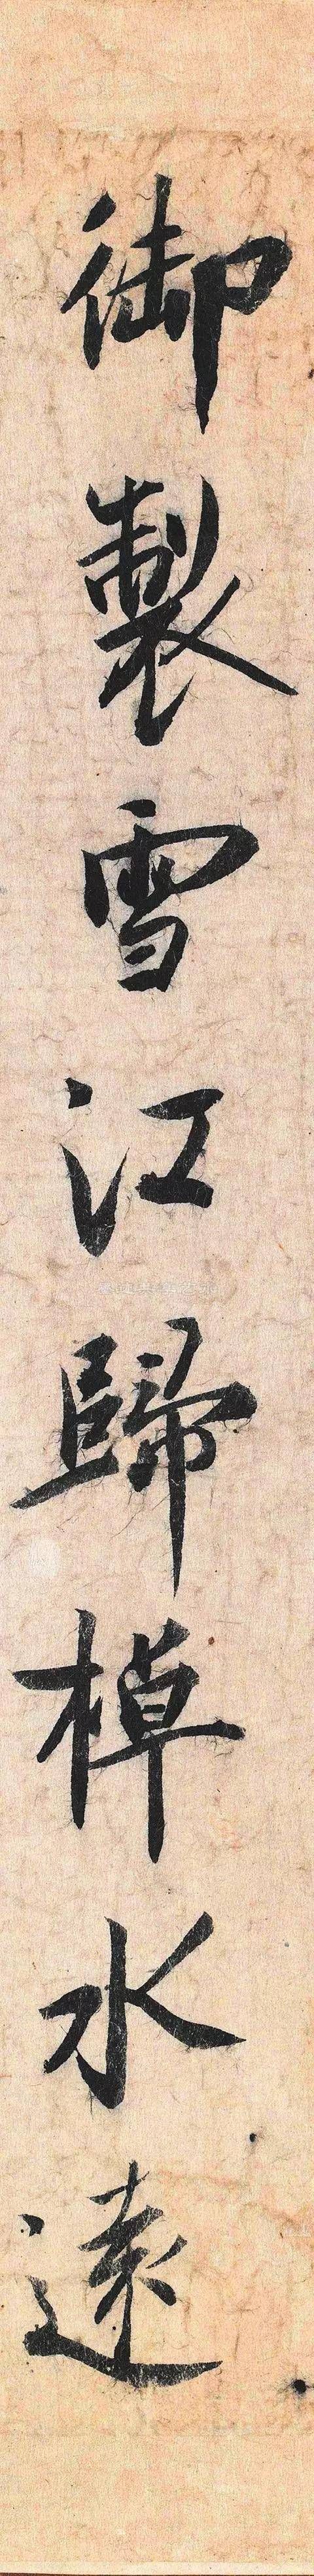 御製雪江歸棹水遠